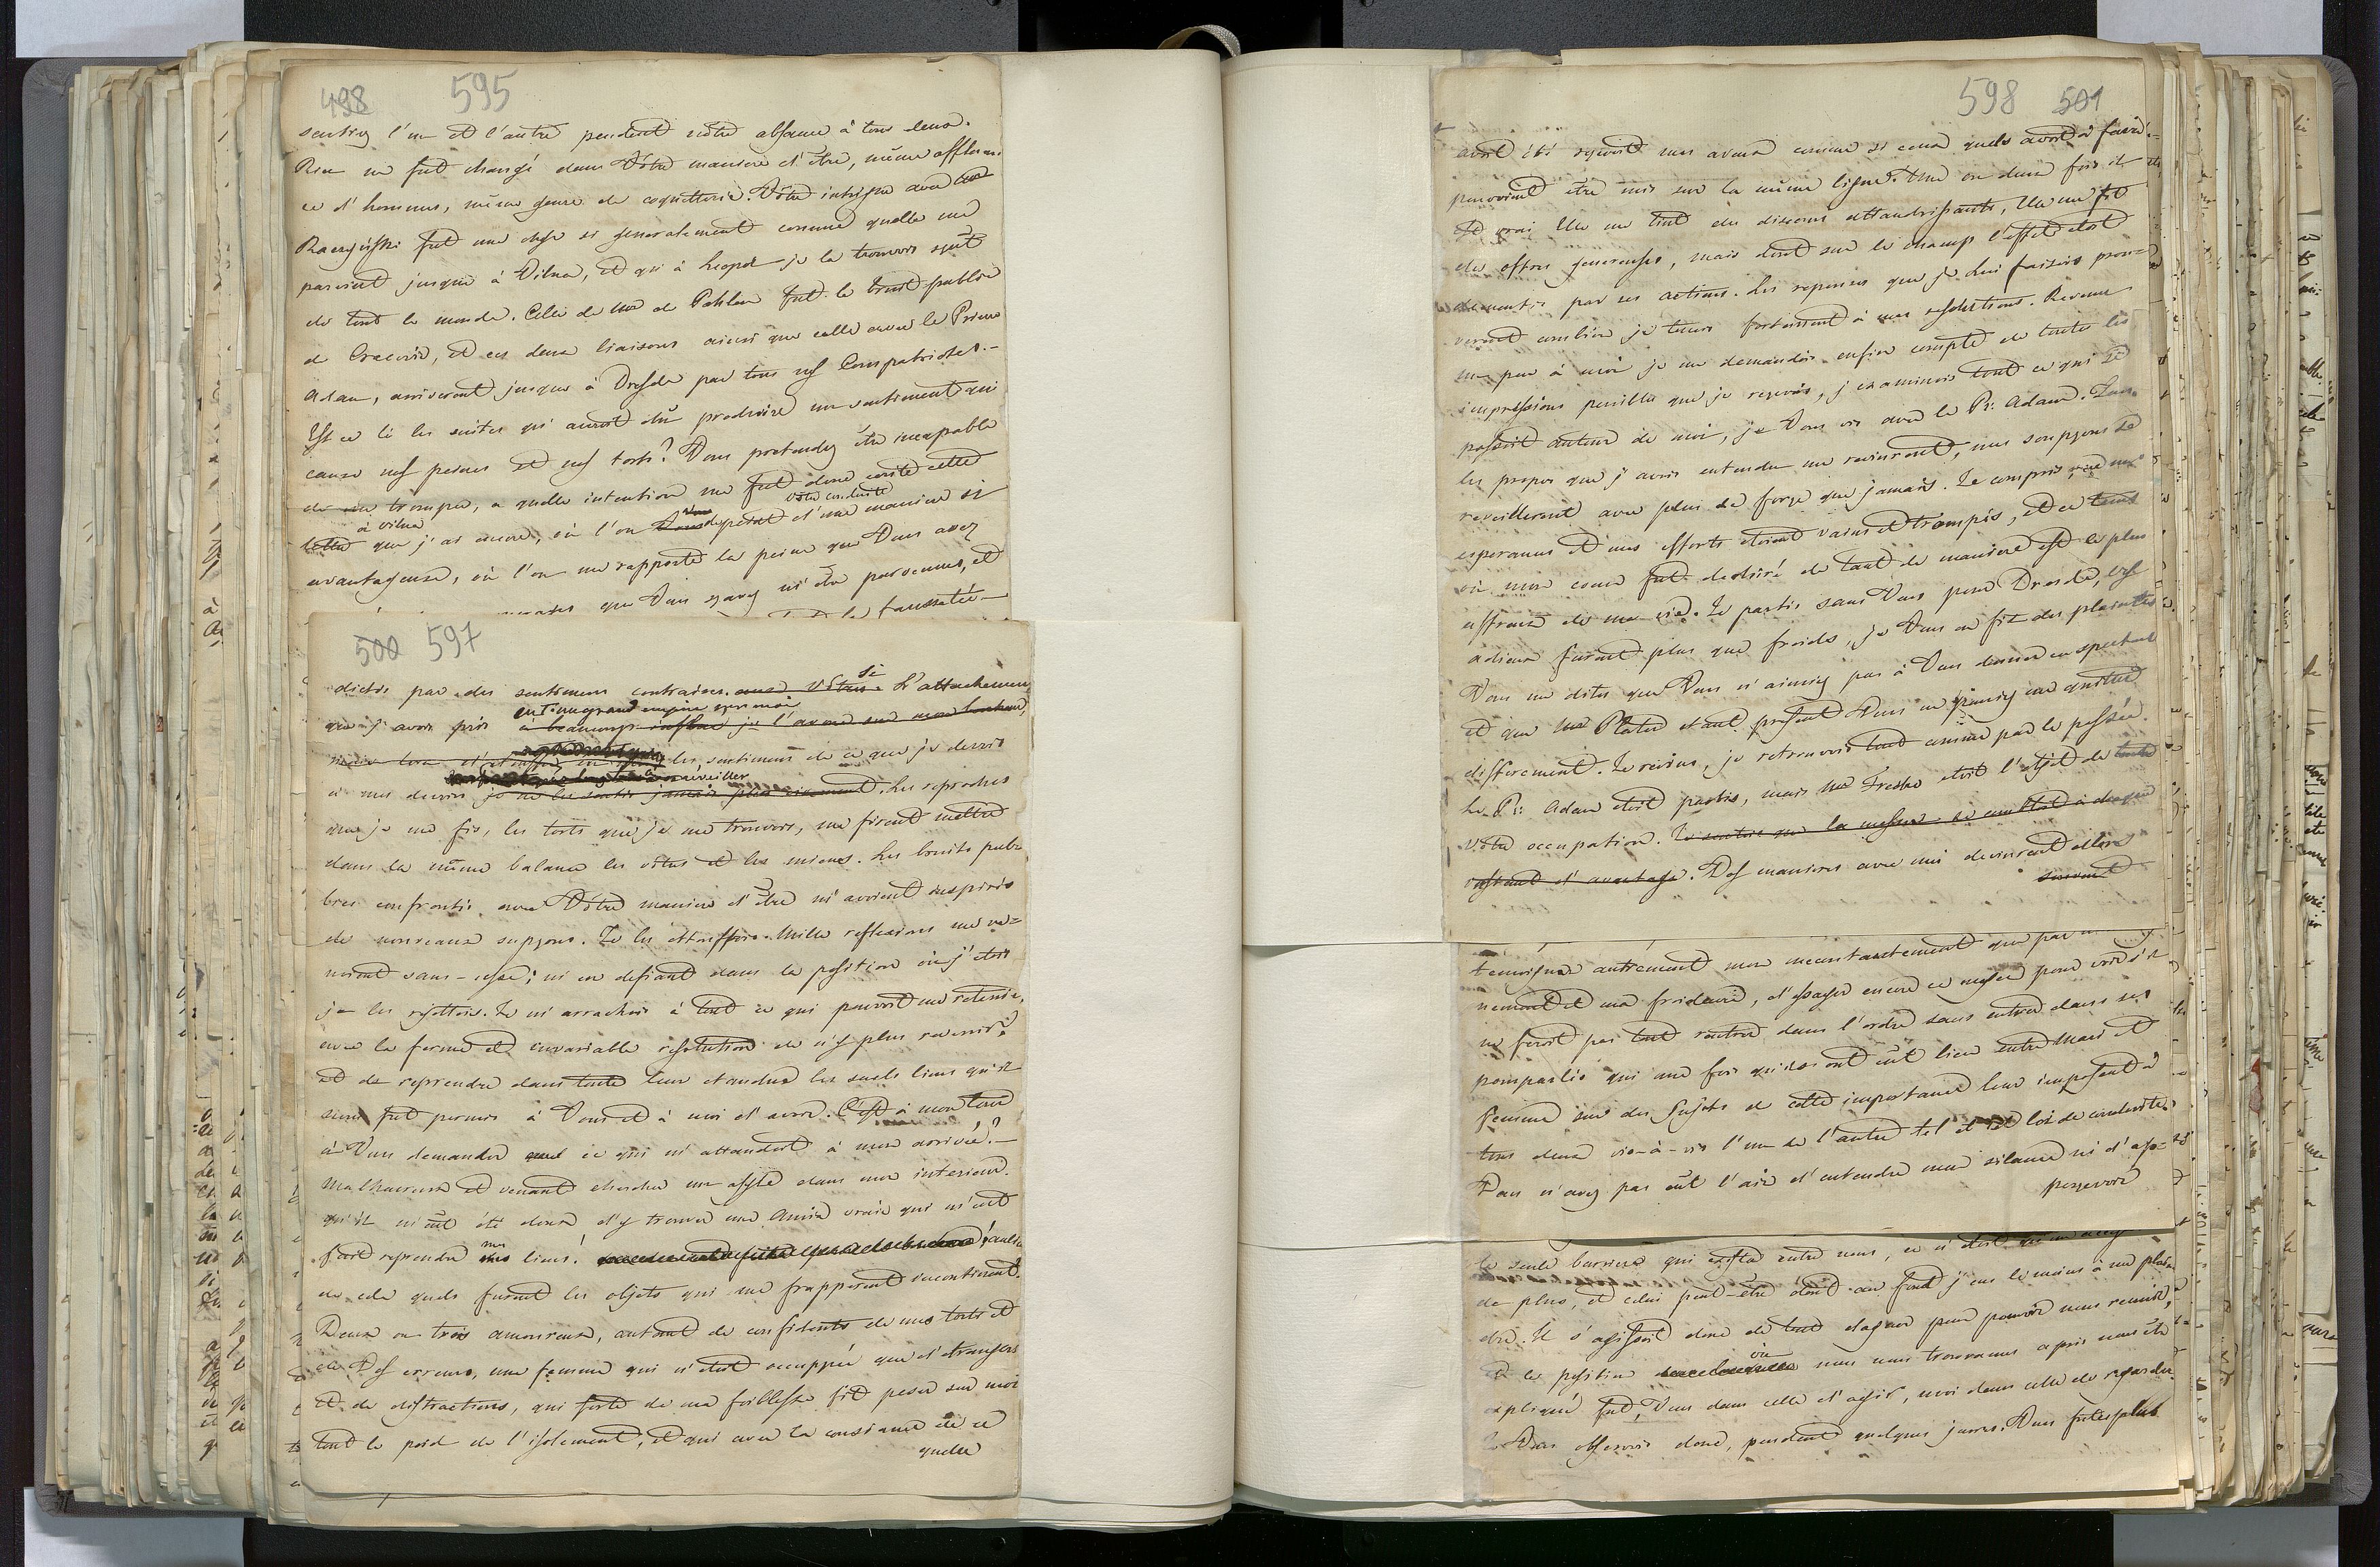 498 595
sentiez l'un et l'autre pendent nôtre absence à tous deux.
Rien ne fut changé dans Vôtre maniere d'être, même affluen-
ce d'hommes, même genre de coquetterie. Vôtre intrigue avec
Raczyński fut une chose si generalement connue quelle me
parvient jusque à Vilna, et qui à Leopol je la trouvois sçüe
de tout le monde. Celle de Mr de Pahlen fut le bruit public
de Cracovie, et ces deux liaisons ainsi que celle avec le Prince
Adam, arriverent jusque à Dresde par tous nos Compatriotes.-
Est ce là les suites qu' auroit dû produire un sentiment qui
cause nos peines et nos torts? Vous pretendez être incapable
de me tromper, a quelle intention me fut donc ecrite cette
à Vilna Vôtre conduite
lettre que j'ai encore, où l'on depeint d'une maniere si
avantageuse, où l'on me rapporte la peine que Vous avez
que Vous sçavez m'être parvenues, et
la fausseté
500 597
dictés par des sentimens contraires avec Vôtres. Si L'attachement
eut un grand empire sur moi
que j'avois pris à beaucoup influé je l'avoue sur mon bonheur,
les sentimens de ce que je devois
reveiller
à mes devoirs je ne les sentis jamais plus vivement. Les reproches
que je me fis, les torts que je me trouvois, me firent mettre
dans la même balance les vôtres et les miens. Les bruits pub-
lics confrontés avec Vôtre maniere d'être m'avoient inspirés
de nouveaux supçons. Je les ettouffois. Mille reflexions me ve=
noient sans-cesse; m'en defiant dans la position où j'etois
je les rejettois. Je m'arrachois à tout ce qui pouvoit me retenir,
avec la ferme et invariable resolution de n'y plus revenir
et de reprendre dans toute leur etendue les seuls liens qu'il
nous fut permis à Vous et à moi d'avoir. C'est à mon tour
à Vous demander ce qui m'attendoit à mon arrivée?-
Malheureux et venant chercher un asyle dans mon interieur.
qu'il m'eut été doux d'y trouver une Amie vraie qui m'eut
mes
fait reprendre mes liens! au lieu
de cela quels furent les objets qui me frapperent incontinent.
Deux ou trois amoureux, autant de confidents de mes torts et
de Vos erreurs, une femme qui n'etoit occuppée que d'etrangers
et de distractions, qui forte de ma foiblesse fit peser sur moi
tout le poid de l'isolement, et qui avec la consiance de ce
quelle
598 501
avoit été reçevoit mes aveux comme si ceux quelle avoit à faire
pouvoient être mis sur la même ligne. Une ou deux fois il
est vrai Elle me tint des discours attendrissants, Elle me fit
des offres genereuses, mais dont sur le champ l'effet etoit
dementi par ses actions. Les reponses que je Lui faisois prou=
voient combien je tenois fortement à mes resolutions. Revenu
un peu à moi je me demandois enfin compte de toutes les
impressions penibles que je reçevois, j'examinois tout ce qui se
passoit autour de moi, je Vous vis avec le Pce Adam. Tous
les propos que j'avois entendu me revinrent, mes soupçons se
reveillerent avec plus de force que jamais. Je compris que mes
esperances et mes efforts etoient vains et trompés, et ce tems
où mon coeur fut dechiré de tant de maniere est le plus
affreux de ma vie. Je partis sans Vous pour Dresde, Vos
adieux furent plus que froids, je Vous en fit des plaintes
Vous me dites que Vous n'aimiez pas à Vous donner en spectacle
et que Mr Plater etant present Vous ne pouviez me quitter
differement. Je revins, je retrouvois tout comme par le passée.
Le Pce Adam etoit partis, mais Mr Fresko etoit l'objet de toute
vôtre occupation. Je sentois que la mesure se combloit à chaque
instant d'avantage. Vos manieres avec moi devinrent allors
souvent
temoigner autrement mon mecontantement que par
nement et ma froideur, d'essayer encore ce moyen pour voir s'il
ne feroit pas tout rentrer dans l'ordre sans entrer dans ses
pourparlés qui une fois qu'ils ont eut lieu entre Mari et
Femme sur des Sujets de cette importance leur imposent à
tous deux vis-à-vis l'un de l'autre tel et tel loix de conduite.
Vous n'avez pas eut l'air d'entendre mon silence ni d'ap-
perçevoir
la seule barriere qui exista entre nous, ce n'etoit
de plus, et celui peut-être dont au fond j'eus le moins à me plain-
dre. Il s'agissoit donc de tout elaguer pour pouvoir nous reunir,
où
et la position nous nous trouvames après nous être
expliqué fut, Vous dans celle d'agir, moi dans celle de regarder.
Je Vous observois donc, pendent quelques jours. Vous futes plus